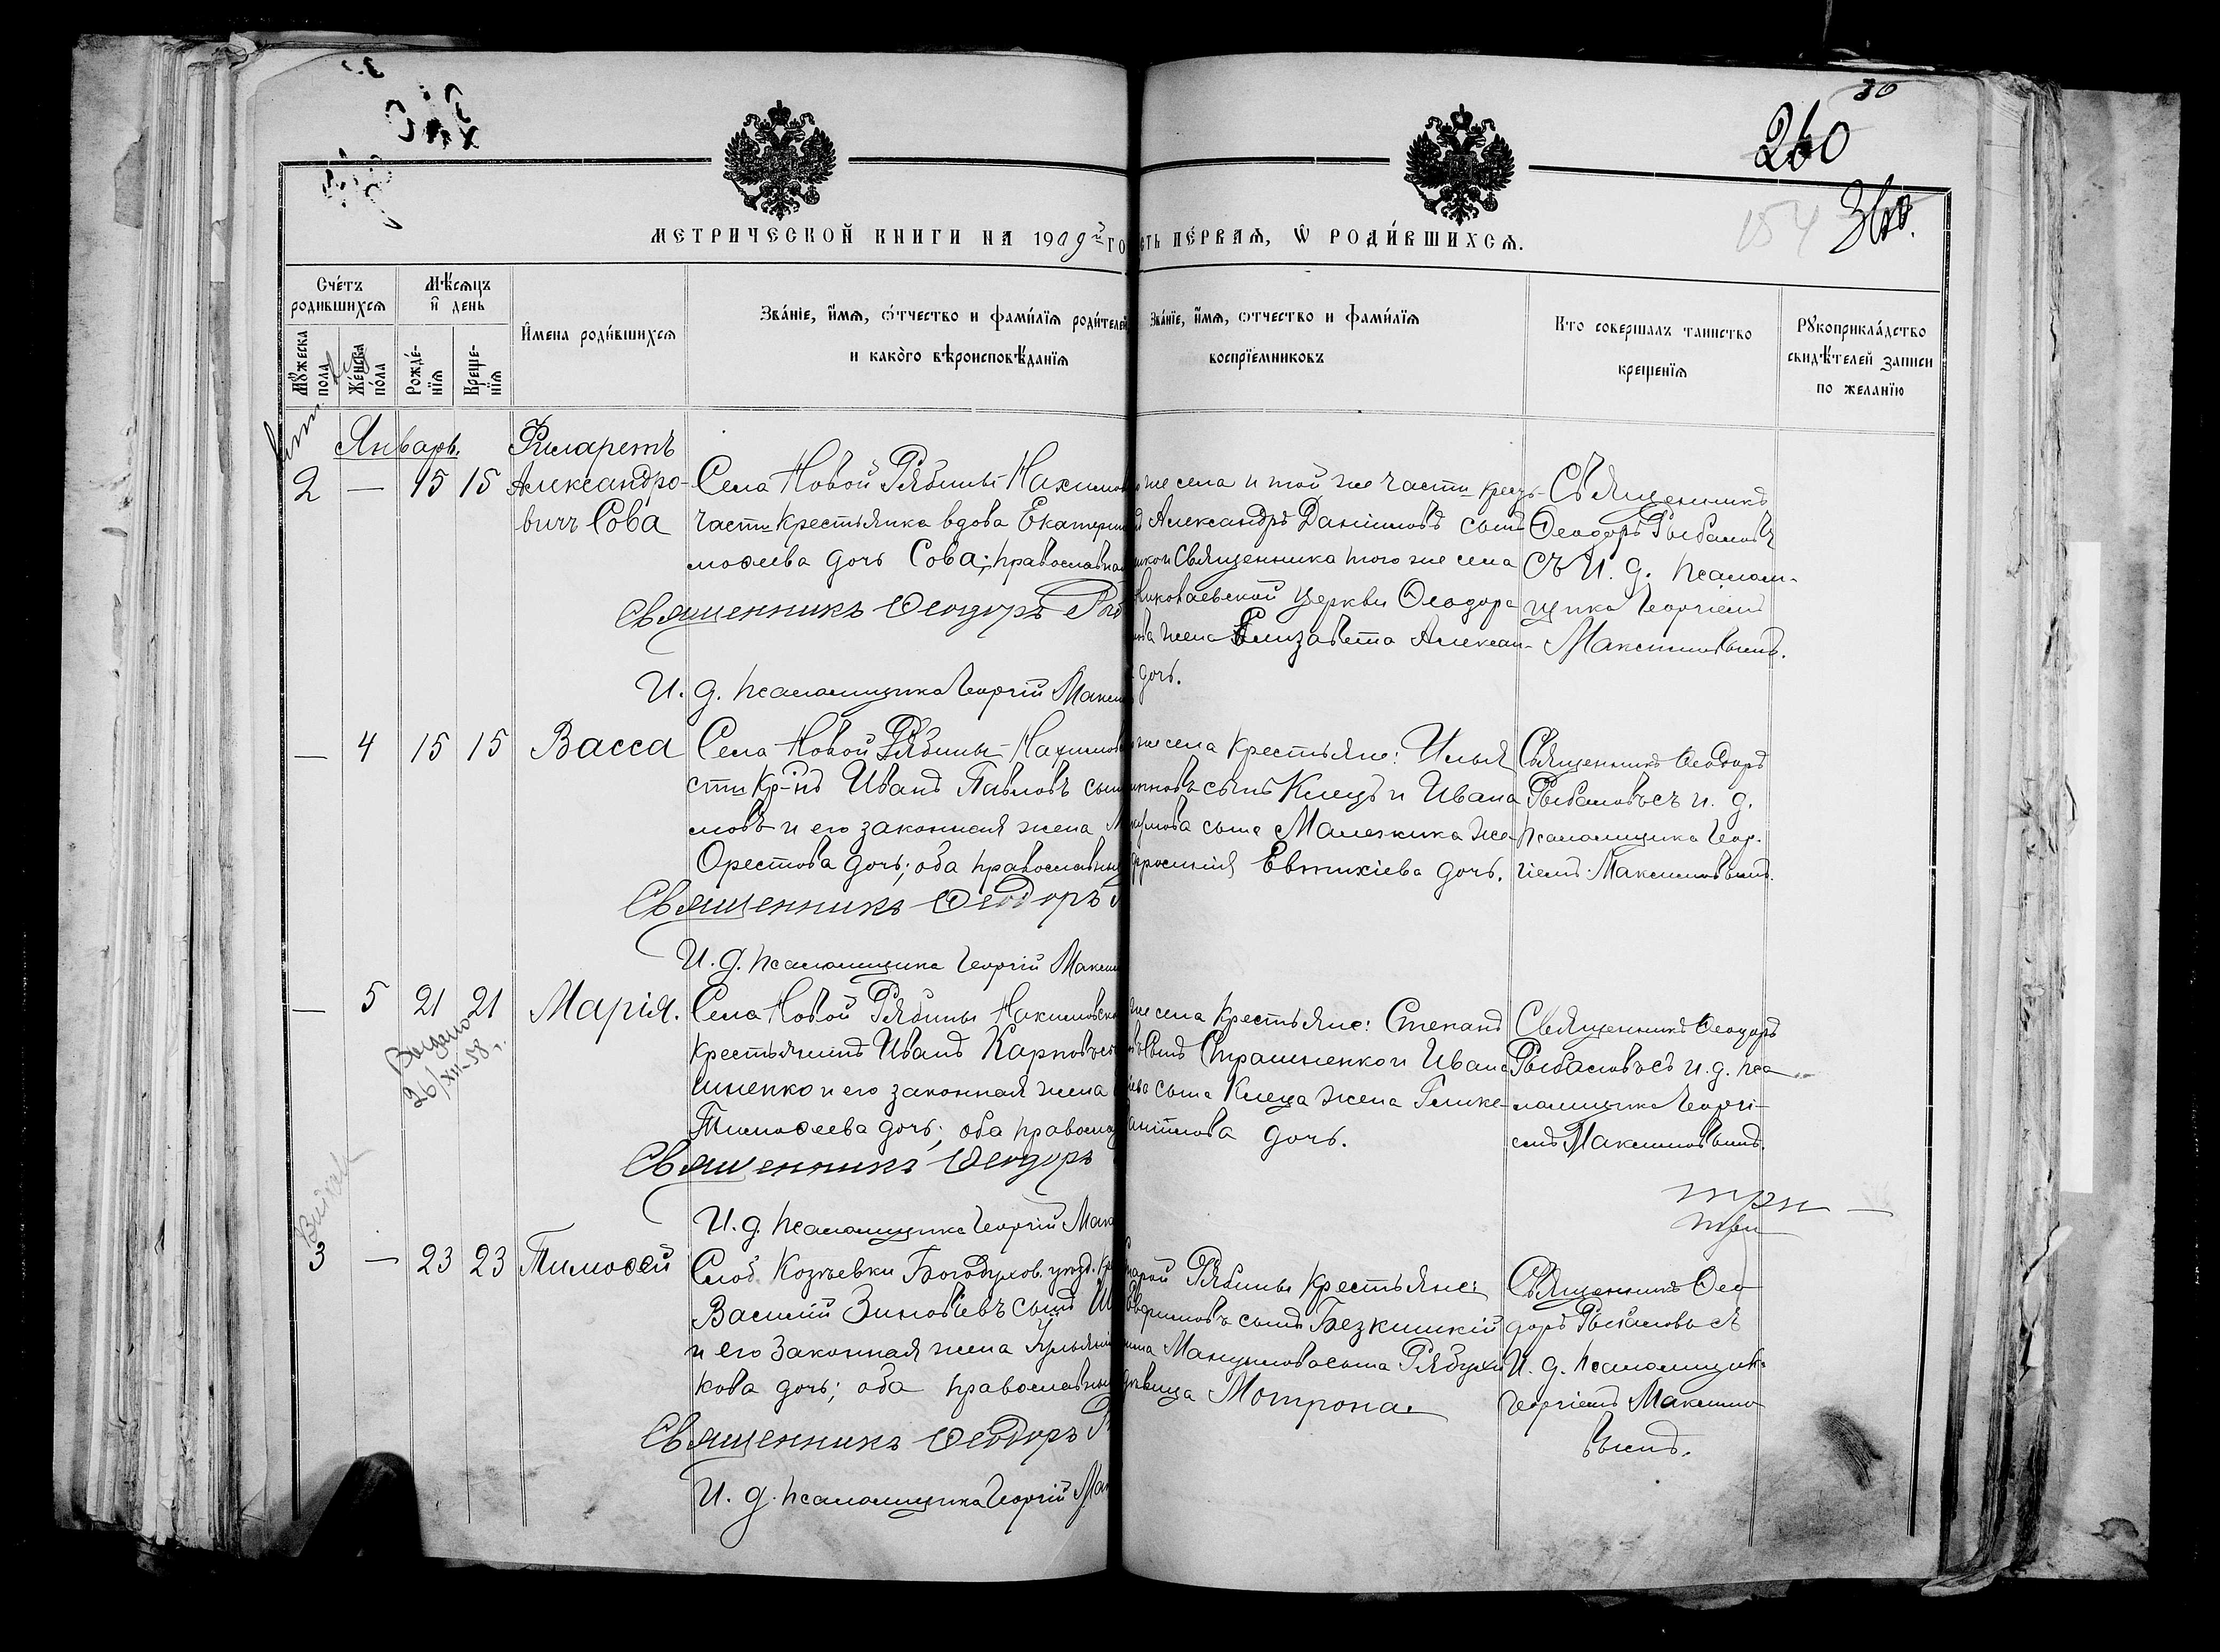 30
260
154
360.
МЕТРИЧЕСКОЙ КНИГИ НА 1909й ГО
СТЬ ПЕ́РВАѦ, Ѡ РОДИ́ВШИХСѦ.
Сче́тъ родившихсѧ
Мѣ́сѧцъ и҆ день
Мꙋжеска пола
Же́нска по́ла
Рожде́-нїѧ
Креще-нїѧ
И҆мена роди́вшихсѧ
Зва́нїе, и҆́мѧ, ѻ҆́тчество и фами́лїѧ роди́телей
и како́гѡ вѣроисповѣ́данїѧ
Зва́нїе, и҆́мѧ, ѻ҆́тчество и фами́лїѧ
воспрїемниковъ
Кто совершалъ таинство
крещенїѧ
Рꙋкоприкла́дство
свидѣ́телей записи
по желанїю
Январь.
2 — 15 15
Филаретъ
Александро-
вичъ Сова
Села Новой Рябины Нахимов
части крестьянка вдова Екатерин
моѳеева дочь Сова; православная
Священникъ Ѳеодоръ Рыб
И. д. псаломщика Георгій Макси
же села и той же части крест-
Александръ Даніиловъ сынъ
Священника того же села
Николаевской церкви Ѳеодора
ова жена Елизавета Алексан-
дочь.
Священникъ
Ѳеодоръ Рыбаловъ
съ И. д. псалом-
щика Георгіемъ
Максимовымъ.
— 4 15 15
Васса
Села Новой Рябины Нахимов
сти кр-нъ Иванъ Павловъ сын
ловъ и его законная жена М
Орестова дочь; оба православны
Священникъ Ѳеодоръ
И. д. псаломщика Георгій Макси
же села крестьяне: Илья
сынъ Клецъ и Ивана
Наумова сына Малежика же-
фросинія Евтихіева дочь.
Священникъ Ѳеодоръ
Рыбаловъ съ и. д.
псаломщика Геор-
гіемъ Максимовымъ.
— 5 21 21
Марія.
Выдано
26/XII-58 г.
Села Новой Рябины Нахимовско
крестьянинъ Иванъ Карповъ
шненко и его законная жена
Тимоѳеева дочь; оба правосла
Священникъ Ѳеодоръ
И. д. псаломщика Георгій Мак
же села крестьяне: Степанъ
Страшненко и Ивана
сына Клеца жена Глике-
дочь.
Священникъ Ѳеодоръ
Рыбаловъ съ и. д. пса-
ломщика Георгі-
емъ Максимовымъ.
три —
три
3 — 23 23
Тимоѳей
Слоб. Козѣевки Богодухов. уѣзд. кр
Василій Зиновіевъ сынъ
и его законная жена Ульяни
кова дочь; оба православны
Священникъ Ѳеодоръ Р
И. д. псаломщика Георгій Мак
тарой Рябины крестьяне:
сынъ Безкишкій
сына Рябухи
дѣвица Мотрона.
Священникъ Ѳео-
доръ Рыбаловъ съ
И. д. псаломщик.
Георгіемъ Максимо-
вымъ.